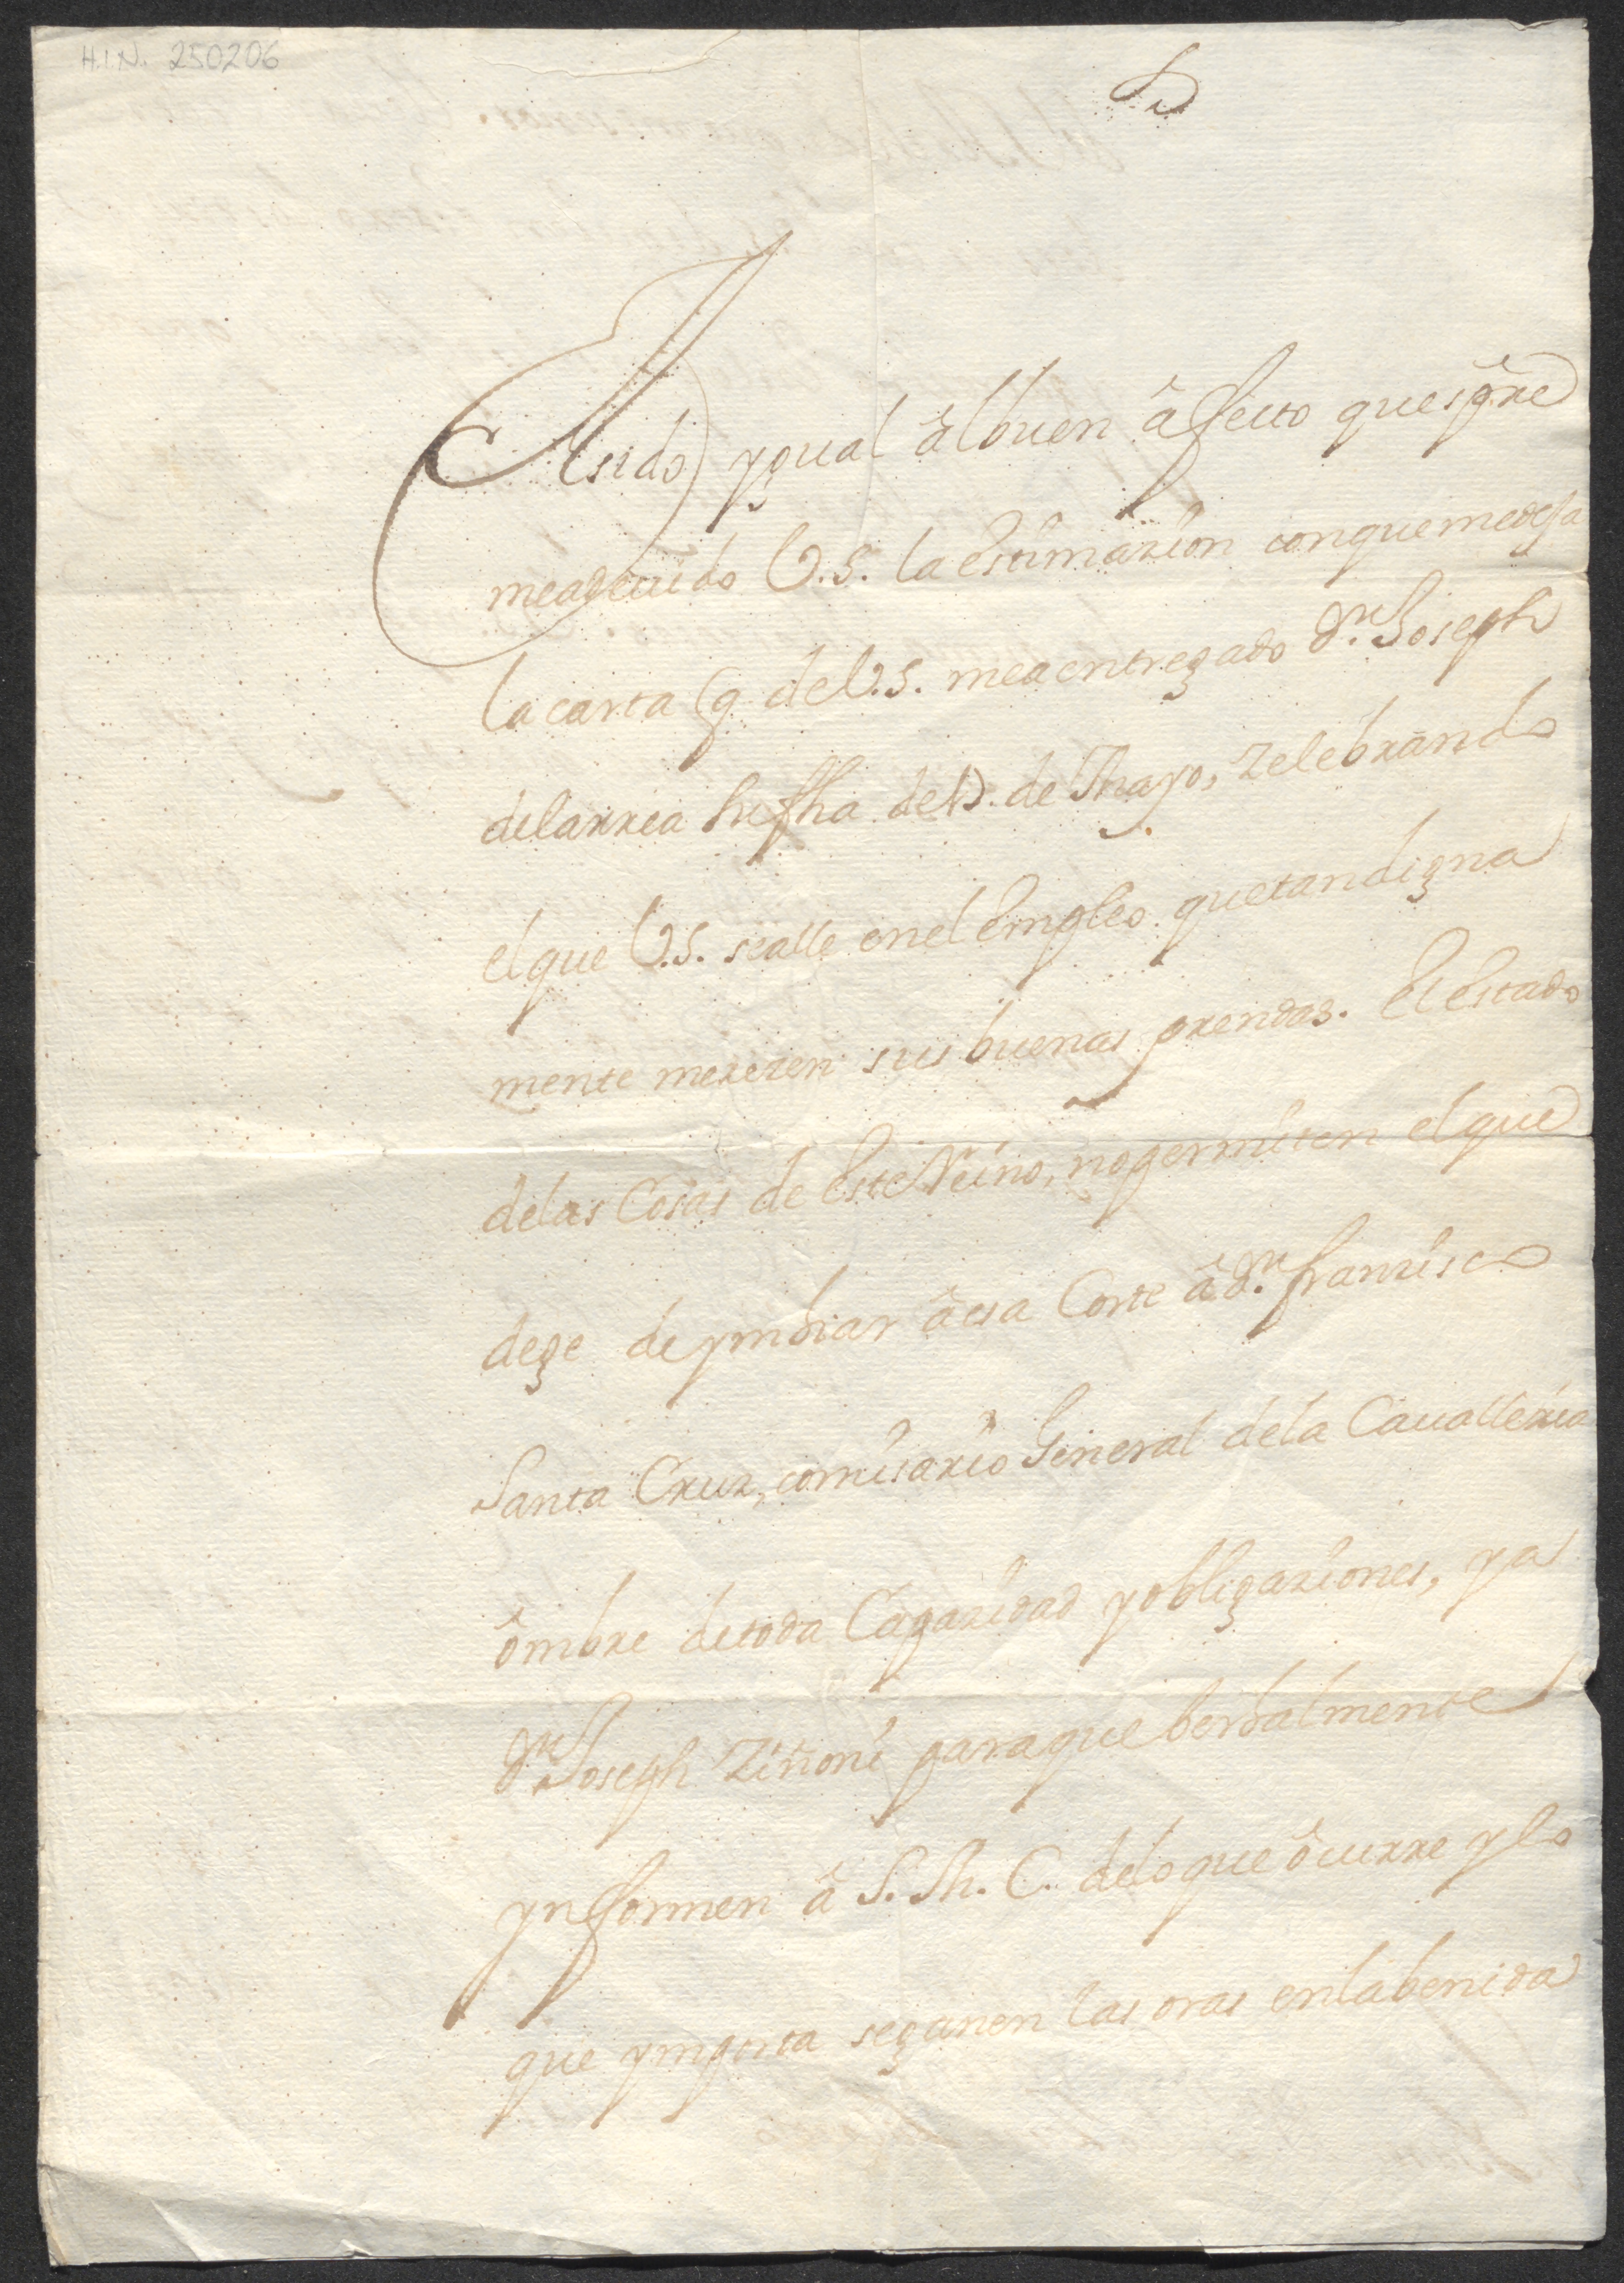 H.I.N. 250206
Asido ygual âlbuen âfecto que sp̃re
meadeuido V.S. la estimazion conquemedexa
la carta q de V.S. mea entregado Dn. Joseph
delarrea su fha de 13. de Mayo, zelebrando
elque V.S. sealle enel empleo quetandigna
mente merezen sus buenas prendas. El estado
delas Cosas de este Reino, nopermiten elque
dege de ymbiar âesa Corte â Dn. franzisco
Santa Cruz, comisario General dela Caualleria
ômbre detoda Capazidad yobligaziones, ya
Dn. Joseph Ziñoni paraque berbalmente
ynformen â S. M. C. deloque ôcurre ylo
que ymporta seganen las oras enlabenida